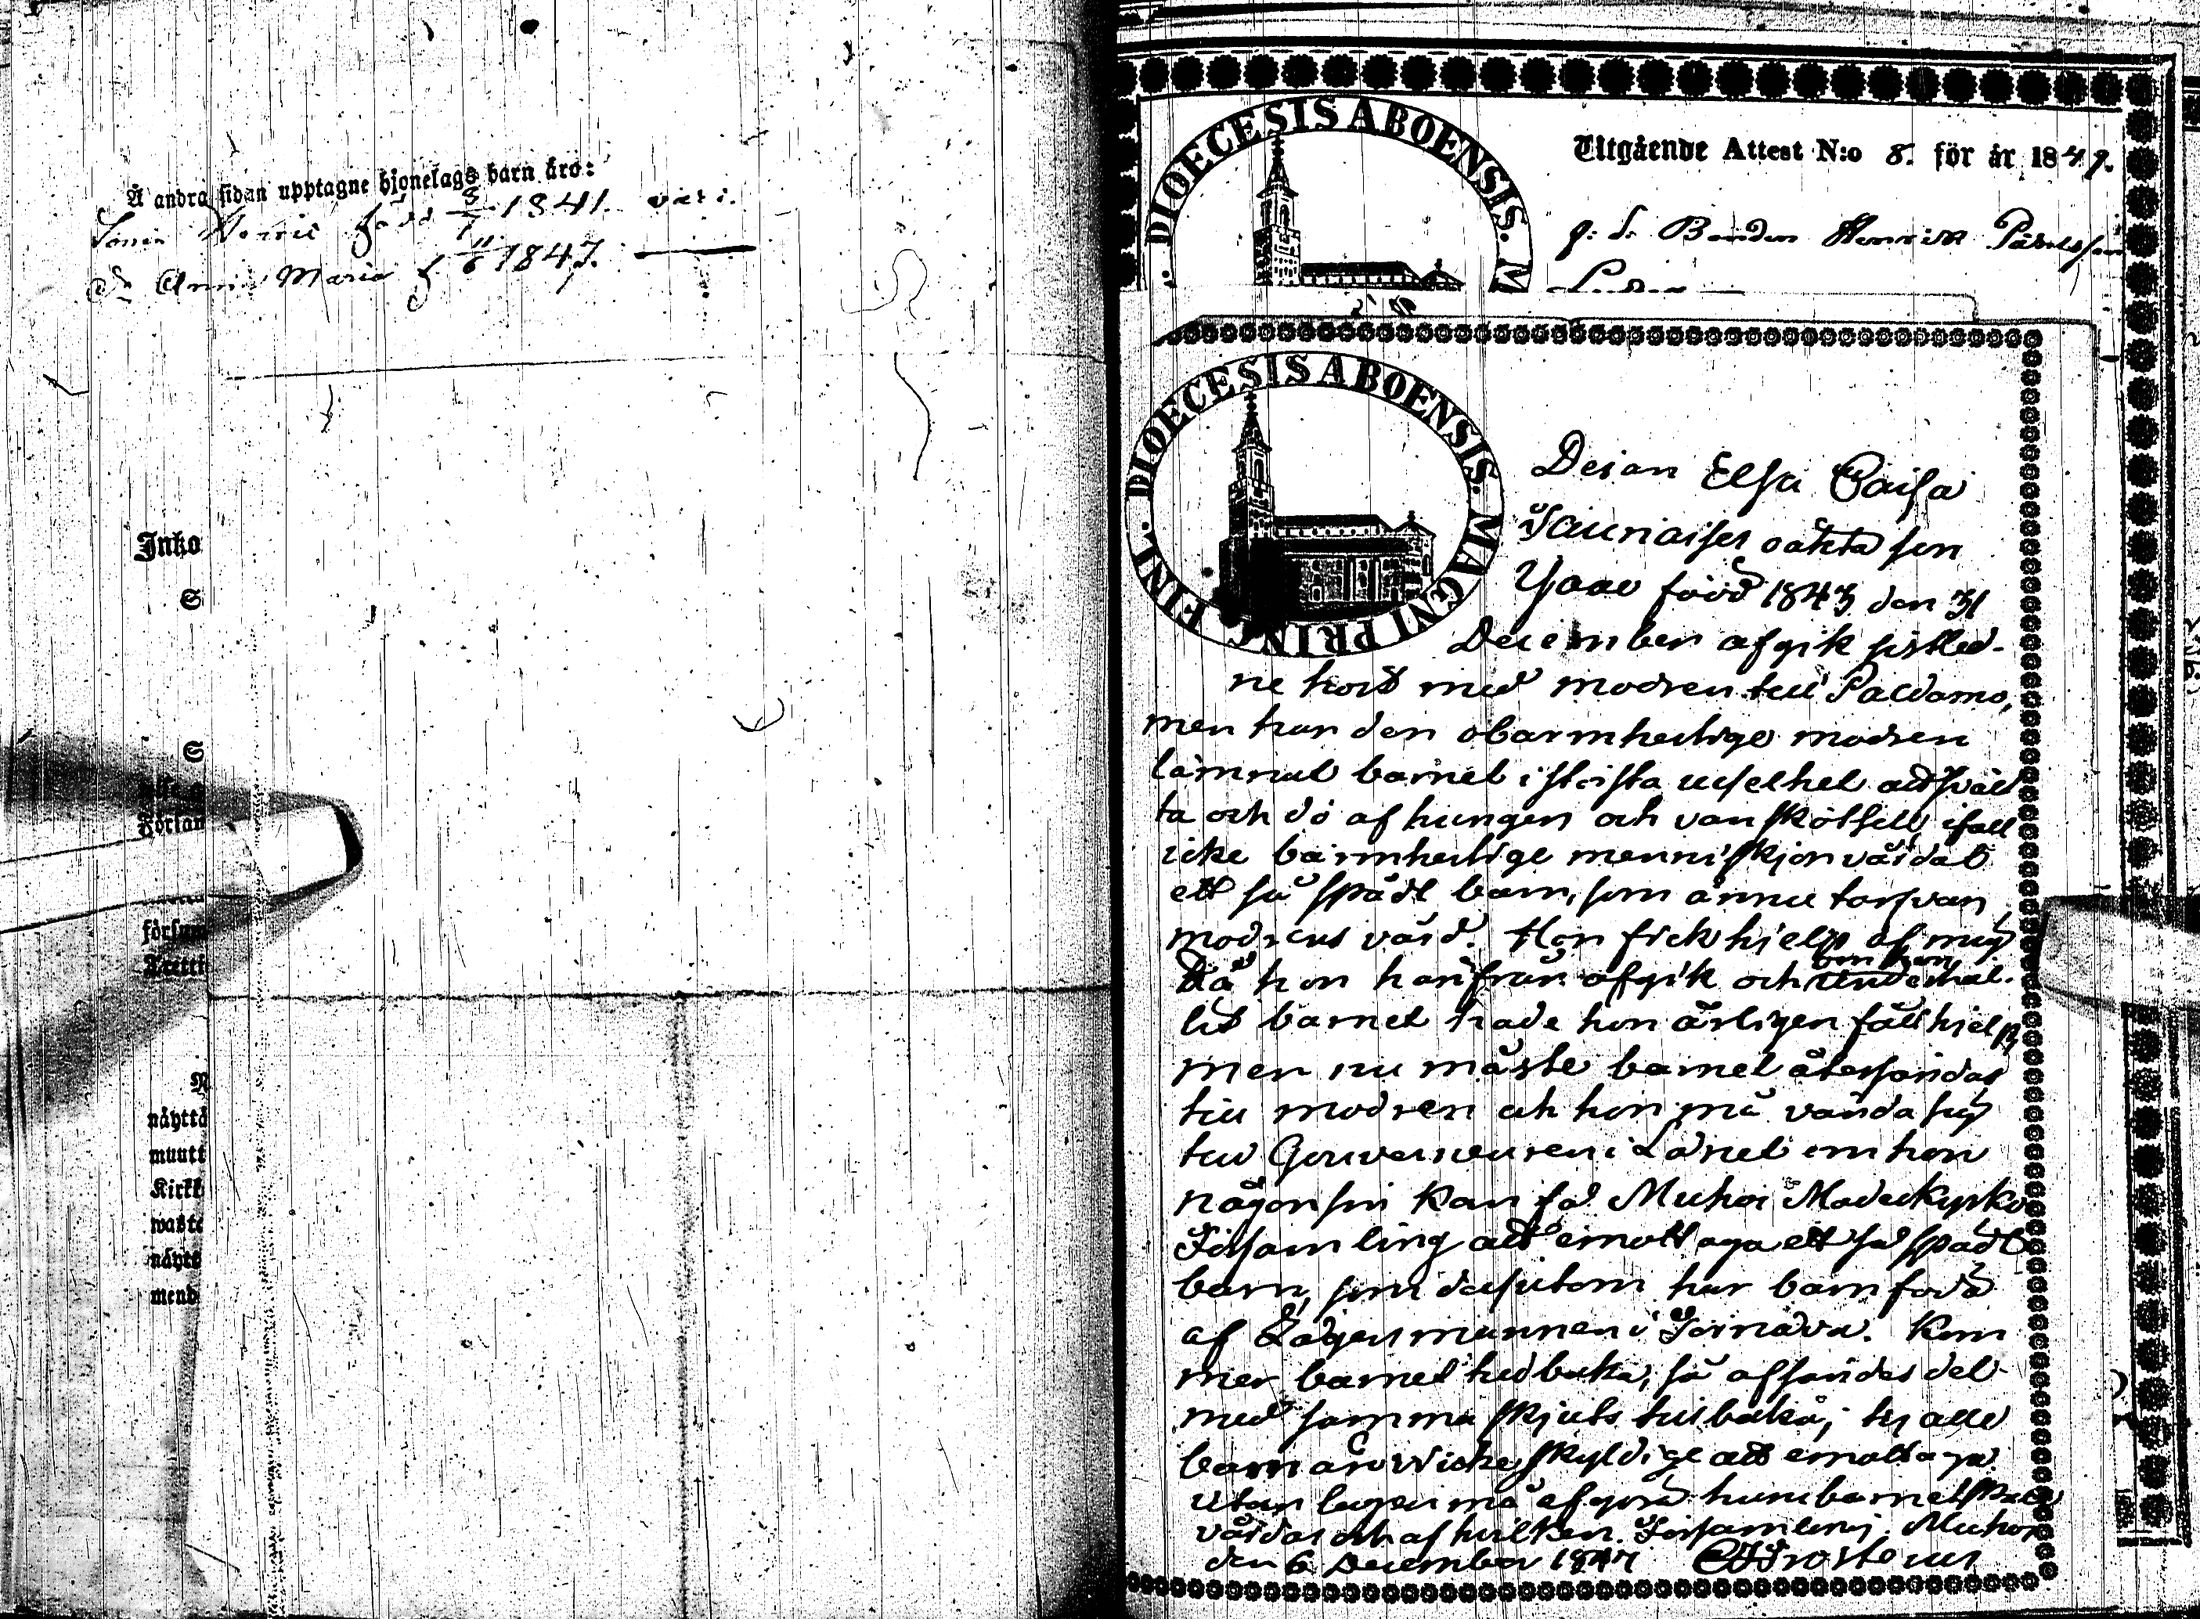 Å andra sidan upptagne hjonelags barn äro:
Sonen Henric född 8/7 1841. vacc.
D:r Anna Maria f. 11/6 1847. —
Inko
S
S
Förlan
försum
Attetti
N
näyttä
muutt
Kirkk
waste
näyte
mend
DIOECESIS ABOENSIS. M
Utgående Attest N:o 8. för år 1847.
Bonden Henrick
DIOECESIS ABOENSIS. MAGNI PRINC. FINL.
Deian Elsa Caisa
oäkta son
född 1843 den 31
December afgik sistled-
ne höst med modren till Paldamo,
men har den obarmhertige modren
lämnat barnet i största uselhet att sväl
ta och dö af hunger och vanskötsell, ifall
icke barmhertige menniskjor vårdat
ett så spädt barn, som ännu tarfvar
modrens vård. Hon fick hjelp af mig
då hon härifrån afgik och om hon underhål-
lit barnet hade hon årligen fått hjelp,
men nu måste barnet återsändas
till modren och hon må vända sig
till Gouverneuren i Länet om hon
någonsin kan få Muhos Kyrko
Församling att emottaga ett så spädt
barn, som dessutom har barnfader
af Länsmannen i Kom
mer barnet tillbaka, så afsändes det
med samma skjuts tillbaka, ty alle
barn äro vi icke skyldige att emottaga
utan lagen må afgöra huru barnet skall
vårdas och af hvilken Församling. Muhos
den 6 December 1847 Frosterus